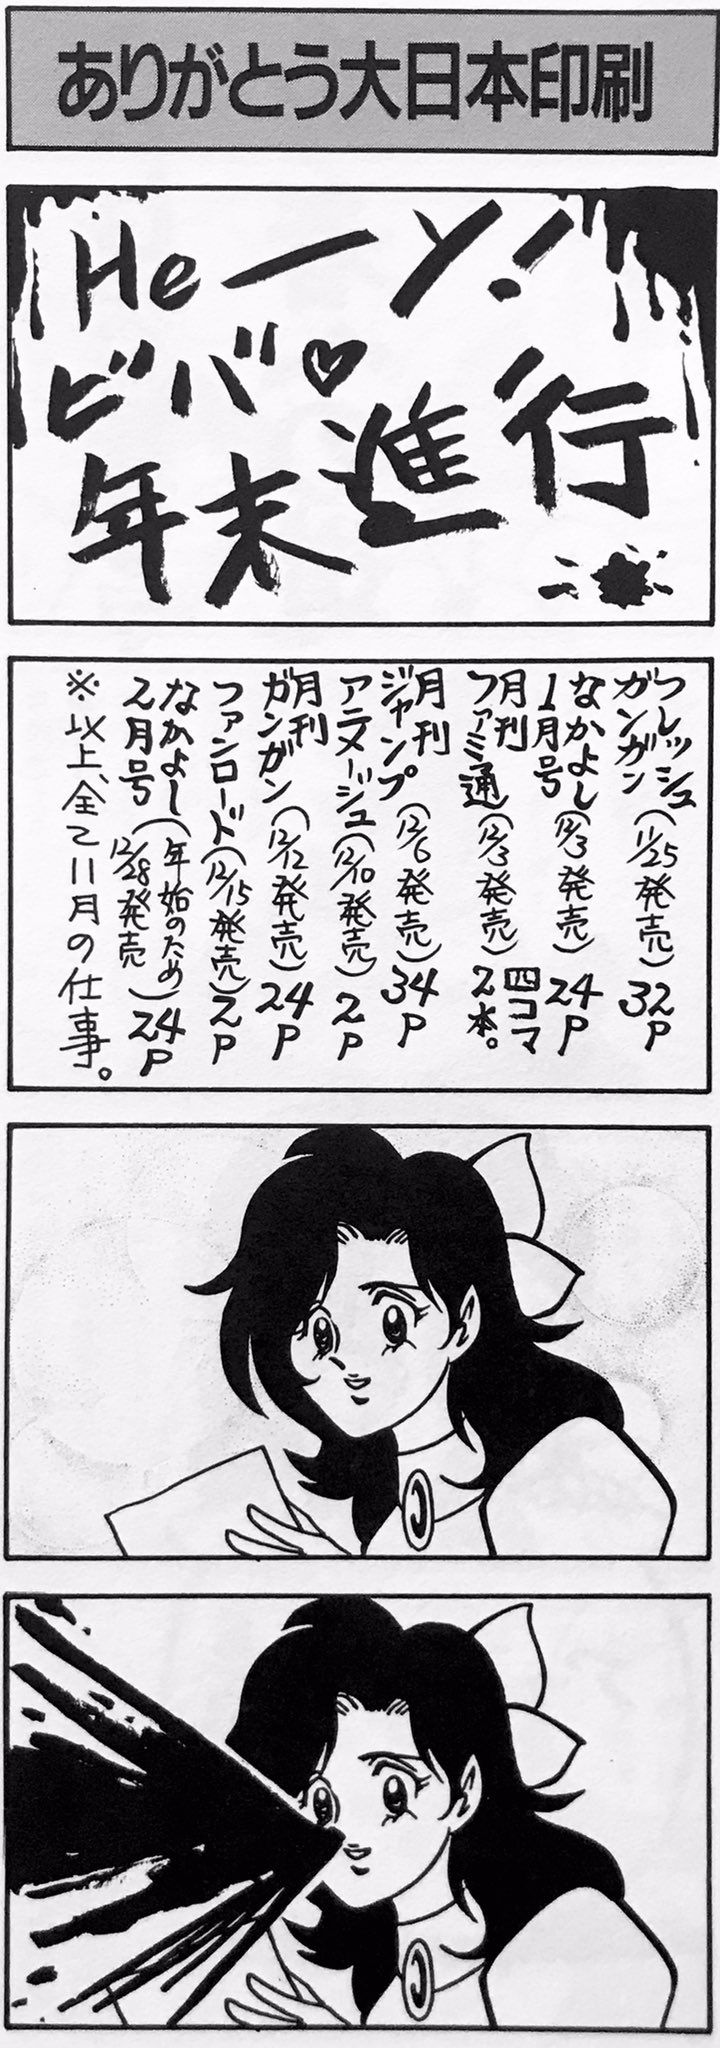 ありがとう大日本印刷
Heーソ!
ビバ♡
年末進行
フレッシュ
ガンガン(11/25発売)32P
なかよし
1月号(12/3発売)24P
月刊
ファミ通(12/3発売)四コマ2本。
月刊
ジャンプ(12/6発売)34P
アニメージュ(12/10発売)2P
月刊
ガンガン(12/12発売)24P
ファンロード(12/15発売)2P
なかよし
2月号(年始のため12/28発売)24P
※以上、全て11月の仕事。